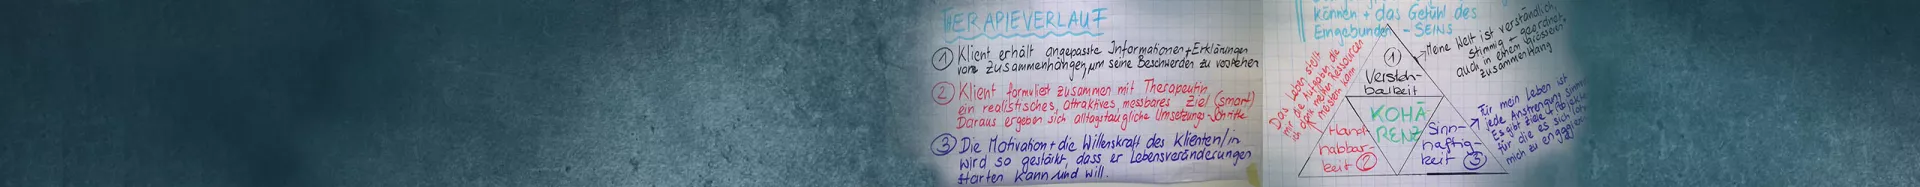 THERAPIEVERLAUF
① Klient erhält angepasste Informationen + Erklärungen
von Zusammenhängen, um seine Beschwerden zu verstehen
② Klient formuliert zusammen mit Therapeutin
ein realistisches, attraktives, messbares Ziel (smart)
Daraus ergeben sich alltagstaugliche Umsetzungs-Schritte
③ Die Motivation + die Willenskraft des Klienten/in
wird so gestärkt, dass er Lebensveränderungen
starten kann und will.
können + das Gefühl des
Eingebunden - SEINS
Meine Welt ist verständlich,
stimmig + geordnet
auch in einem grösseren
Zusammenhang
①
Versteh-
barkeit
Das Leben stellt
mir die Aufgaben, die
ich den meinen Ressourcen
meistern kann
KOHÄ
RENZ
Hand-
habbar-
keit ②
Sinn-
haftig-
keit ③
Für mein Leben ist
jede Anstrengung
Es gibt Ziele +
für die es sich
mich zu